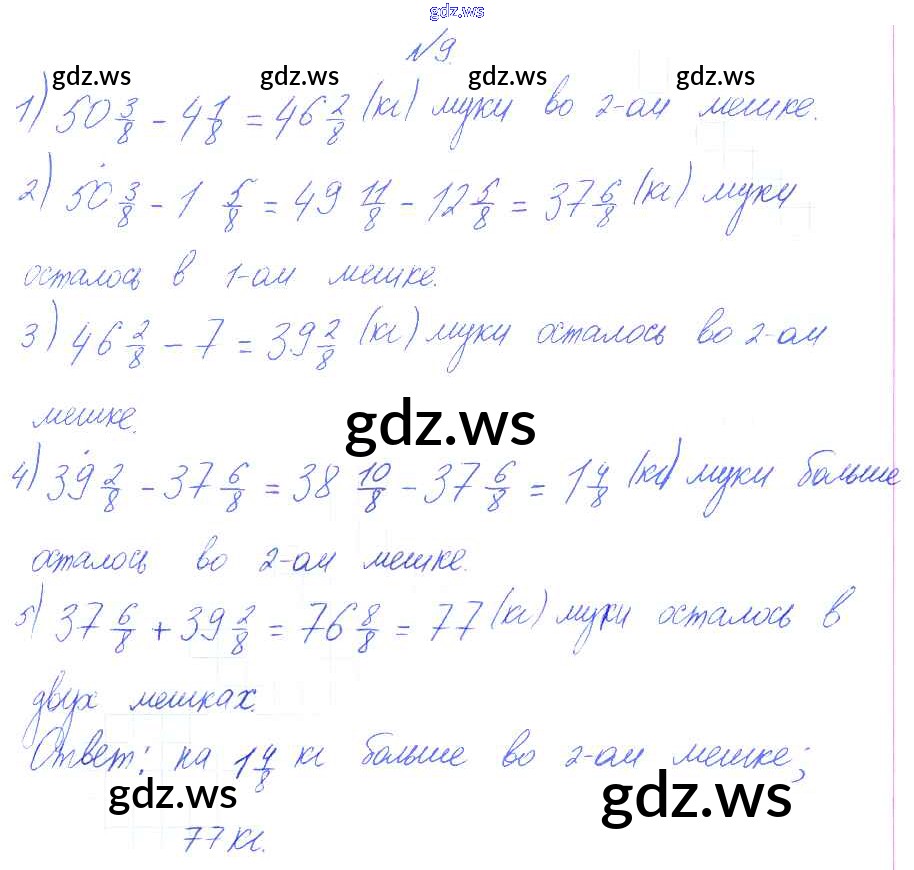 gdz.ws
№9.
gdz.ws gdz.ws gdz.ws gdz.ws
1) 50 3/8 - 4 1/8 = 46 2/8 (кг) муки во 2-ом мешке.
2) 50 3/8 - 1 5/8 = 49 11/8 - 12 5/8 = 37 6/8 (кг) муки
осталось в 1-ом мешке.
3) 46 2/8 - 7 = 39 2/8 (кг) муки осталось во 2-ом
мешке.
gdz.ws
4) 39 2/8 - 37 6/8 = 38 10/8 - 37 6/8 = 1 4/8 (кг) муки больше
осталось во 2-ом мешке.
5) 37 6/8 + 39 2/8 = 76 8/8 = 77 (кг) муки осталось в
двух мешках.
Ответ: на 1 4/8 кг больше во 2-ом мешке;
gdz.ws gdz.ws
77 кг.